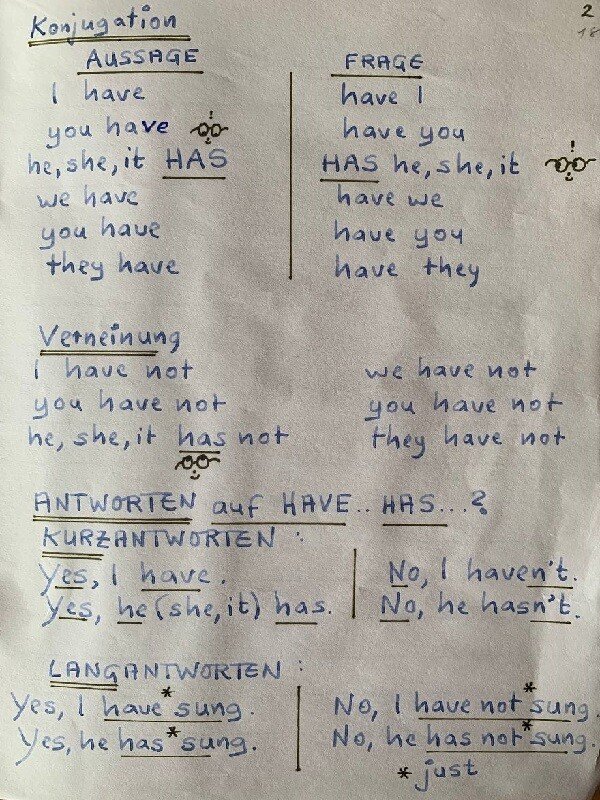 Konjugation
2
18
AUSSAGE
I have
you have
he, she, it HAS
we have
you have
they have
FRAGE
have I
have you
HAS he, she, it
have we
have you
have they
Verneinung
I have not
you have not
he, she, it has not
we have not
you have not
they have not
ANTWORTEN auf HAVE.. HAS...?
KURZANTWORTEN :
Yes, I have.
Yes, he (she, it) has.
No, I haven't.
No, he hasn't.
LANGANTWORTEN :
Yes, I have * sung.
Yes, he has * sung.
No, I have not * sung.
No, he has not * sung.
* just